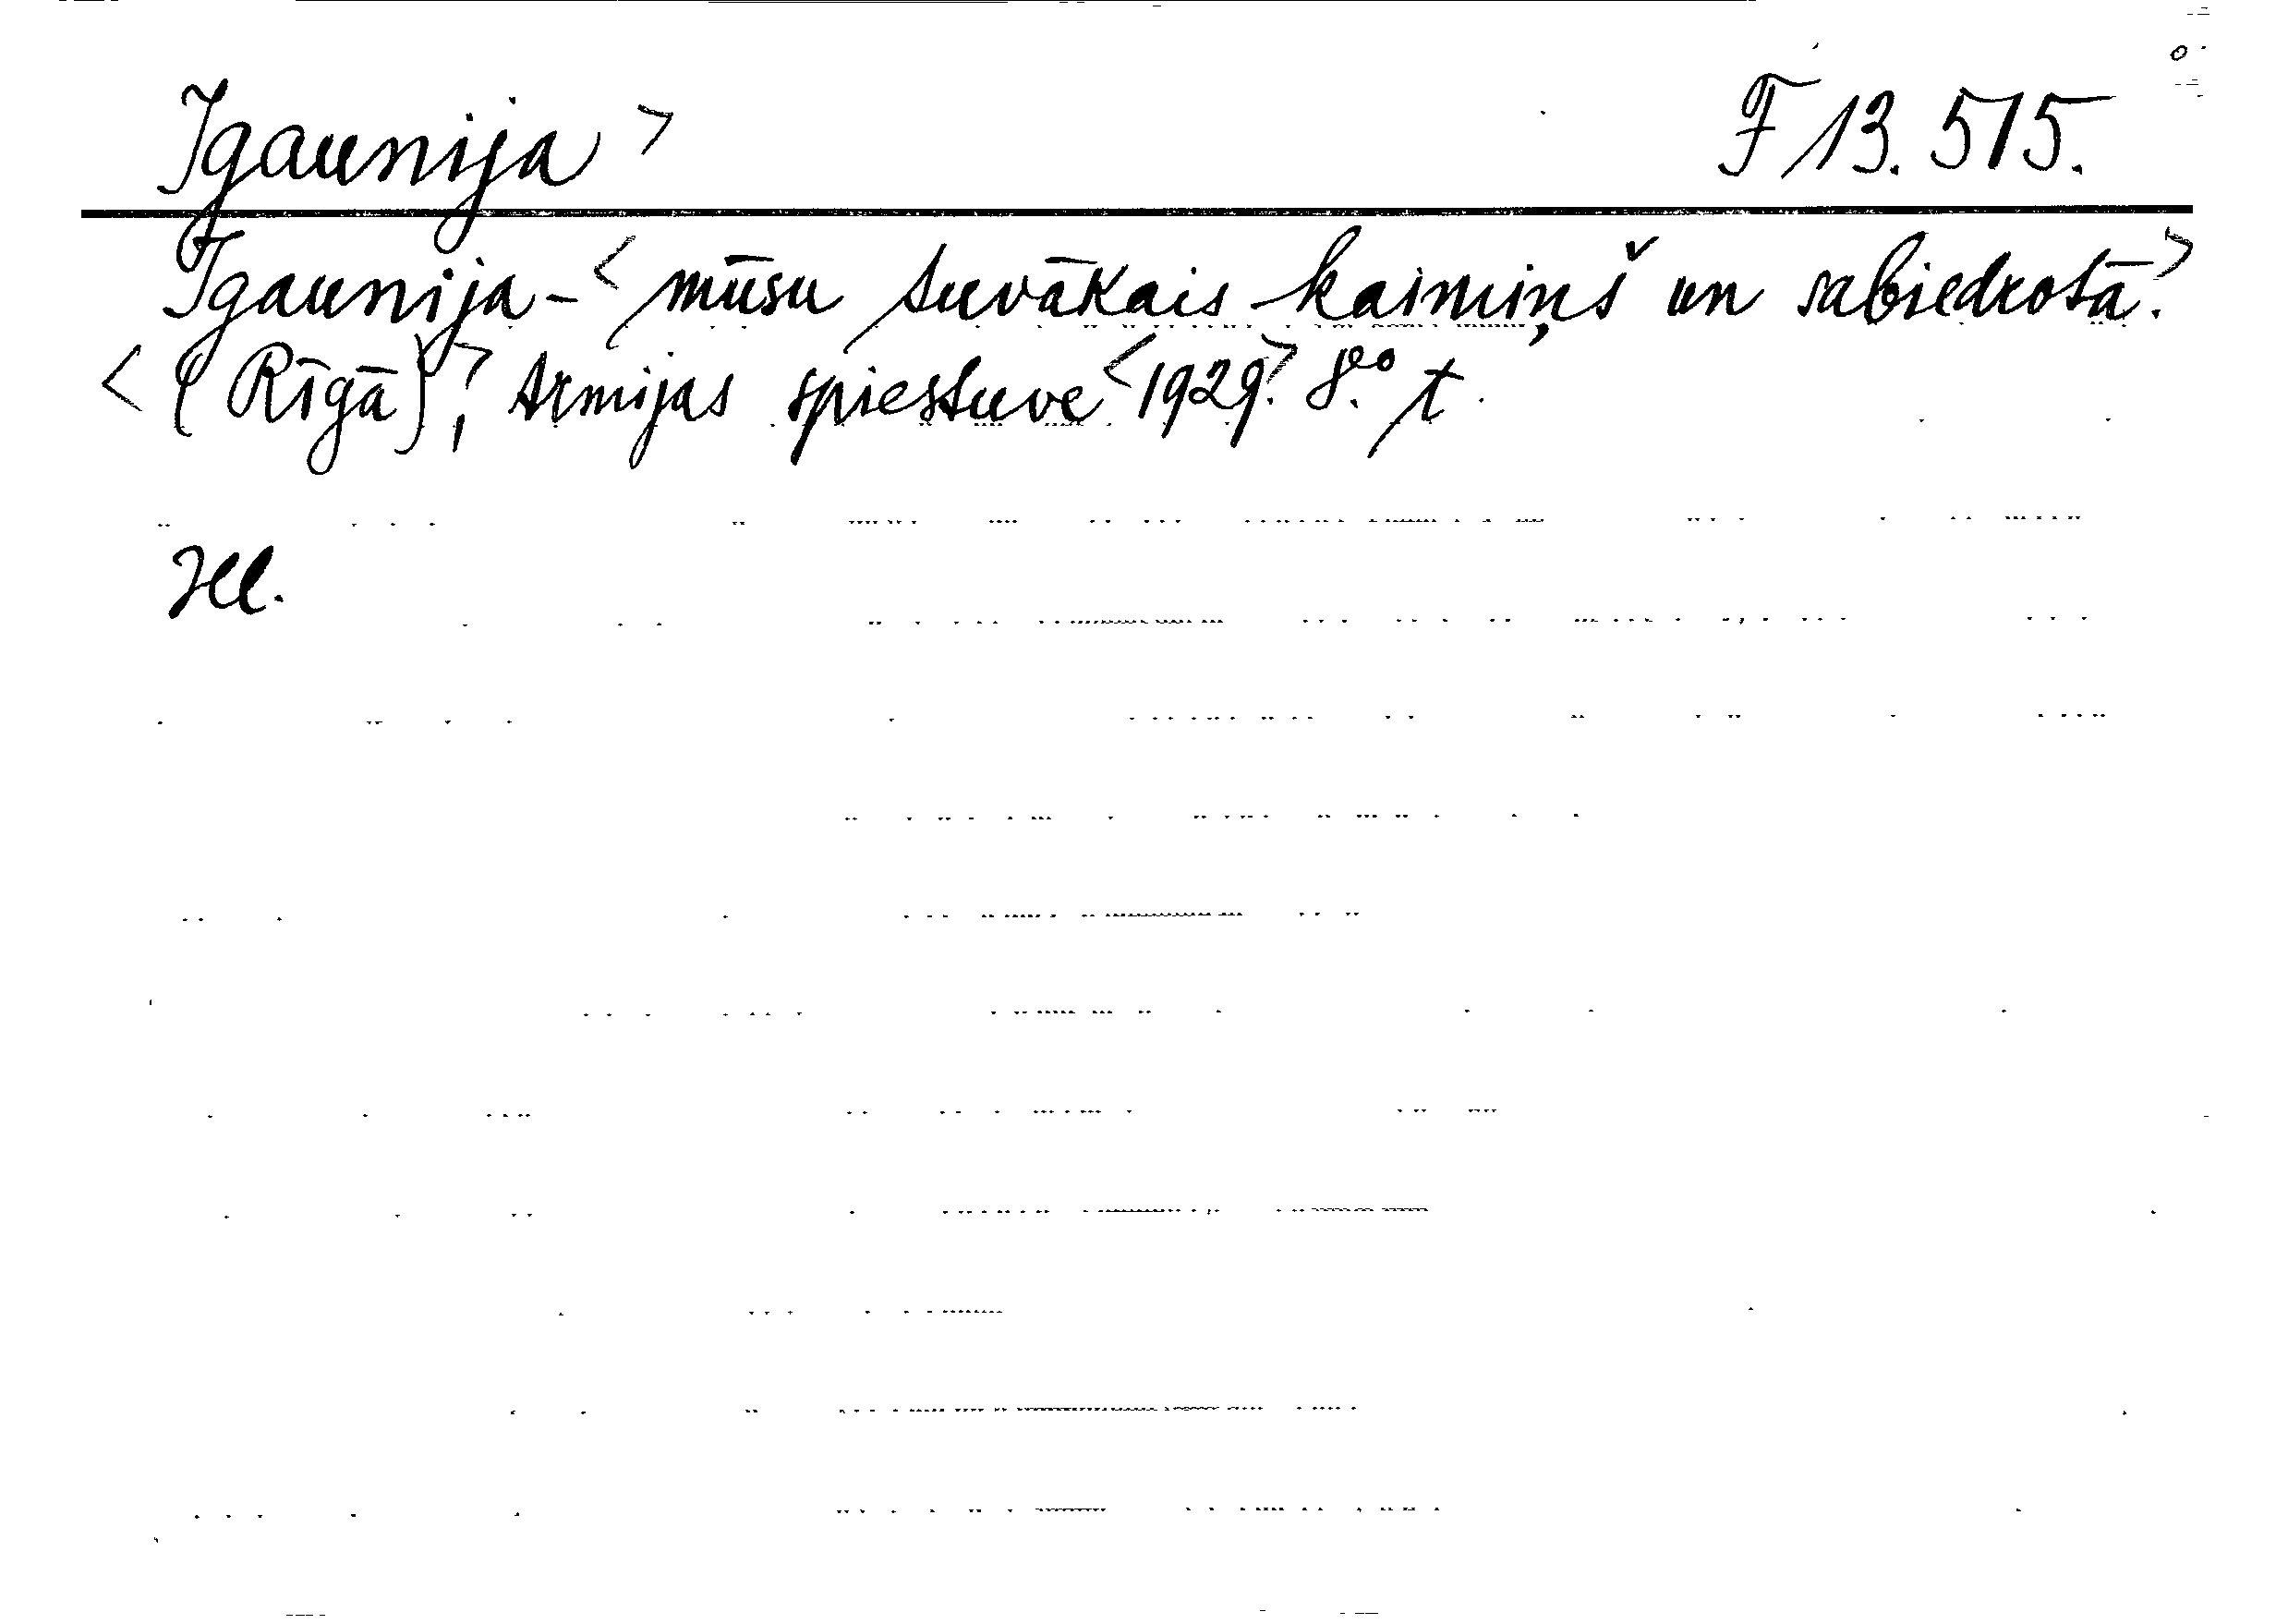 Igaunija> F 13.515.
Igaunija - <mūsu tuvākais kaimiņš un sabiedrotā.>
<(Rīgā),> Armijas spiestuve <1929.> 8.° t.
Ill.